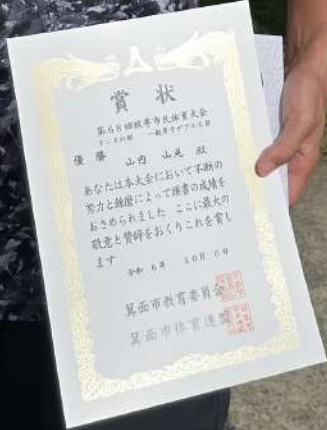 賞状
第68回秋季市民体育大会
テニスの部 一般男子ダブルスB
優勝 山内 山晃 殿
あなたは本大会において不断の
努力と錬磨によって頭書の成績を
おさめられました ここに最大の
敬意と賛辞をおくりこれを賞し
ます
令和6年 10月6日
箕面市教育委員会
箕面市体育連盟